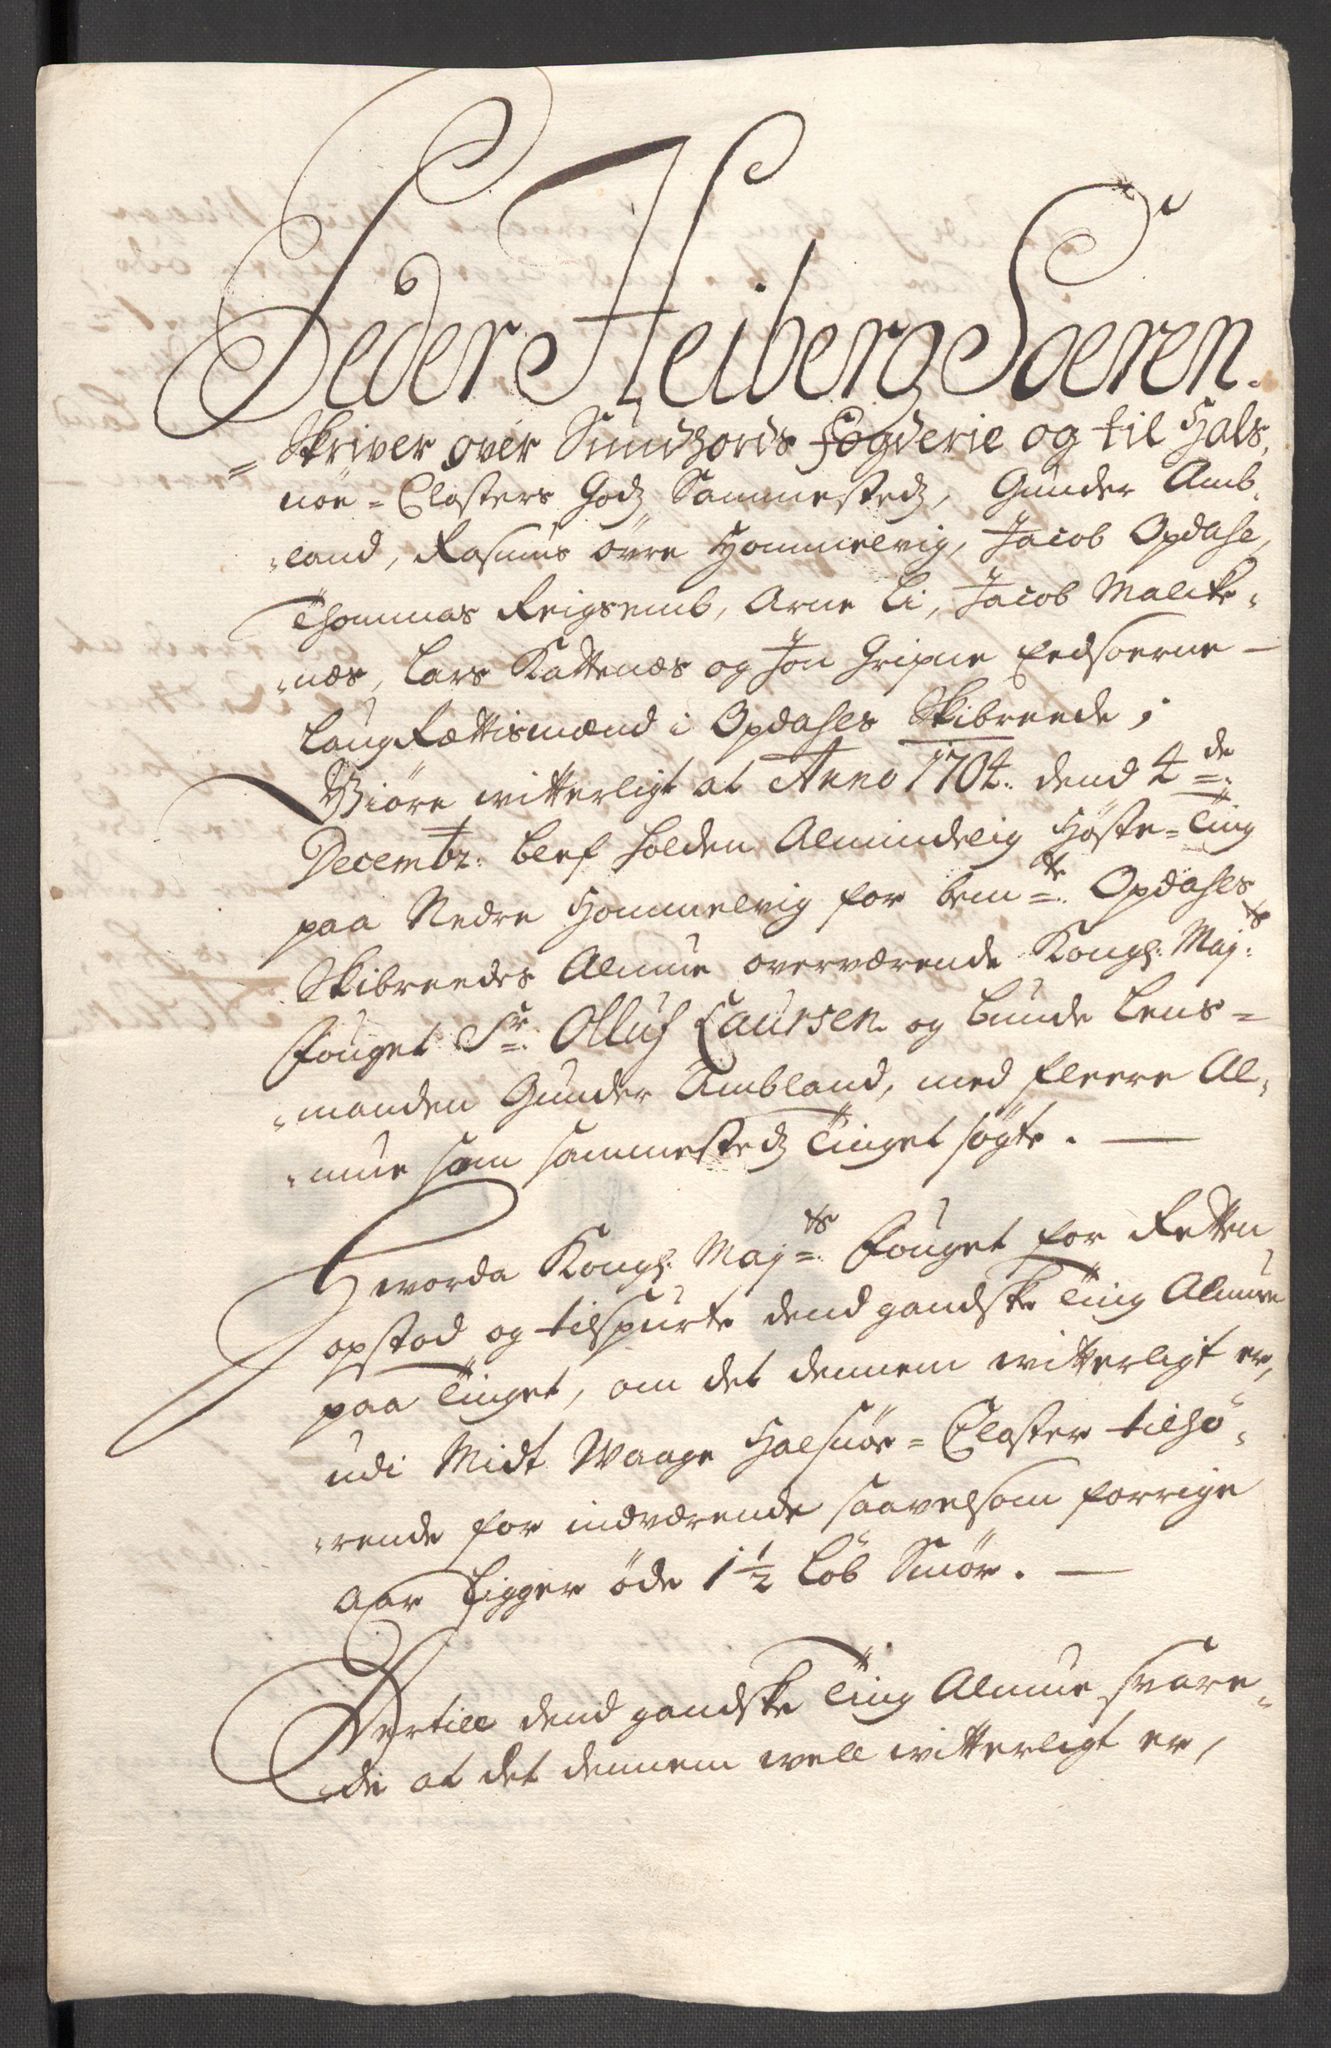 Peder Heiberg Soeren.
= Skriver over Sundhords fogderie og til Hals,
nöe = Closters Godz Sammestedz, Gunder Amb-
land, Rasmus övre Hommelvig, Jacob Opdahl,
Thommas Reigsemb, Arne Li, Jacob Malke-
næs, Lars Kattenæs og Jon Gripne Eedsoerne
LaugRættismænd i Opdahls Skibreede;
Giöre witterligt at Anno 1704. dend 4de
Decembr: blef holden Almindelig Höste-Ting
paa Nedre Hommelvig for bemte Opdahls
Skibreedes Almue overværende Kongl: Majts
Fouget Sr: Olluf Laursen og bunde Lens-
manden Gunder Ambland, med fleere Al-
mue som sammestedz Tinget sögte. —
Hvorda Kongl: Majts Fouget for Retten
opstod og tilspurte dend gandske Ting Almue
paa Tinget, om det dennem witterligt er,
udi Midt Waage Halsnöe = Closter tilhö-
rende for indværende saavelsom forrige
Aar ligger öde 1 1/2 Löb Smör. —
Hvertill dend gandske Ting Almue svare-
de at det dennem well witterligt er,